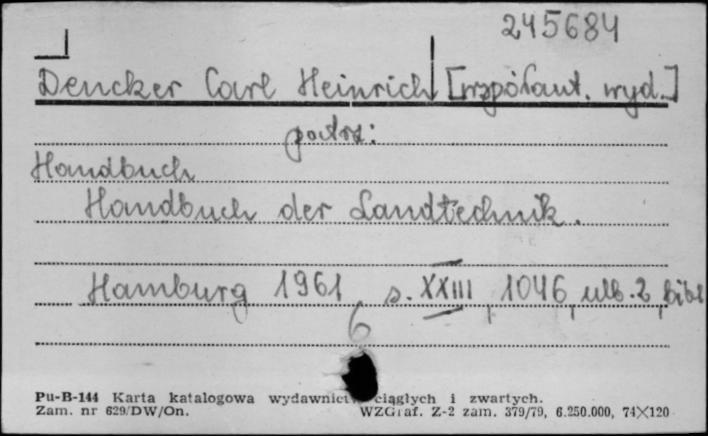 245684
Dencker Carl Heinrich [współaut. wyd.]
patrz:
Handbuch
Handbuch der Landtechnik.
Hamburg 1961 s. XXIII, 1046, ulb. 2, bibl
6
Pu-B-144 Karta katalogowa wydawnictw ciągłych i zwartych.
Zam. nr 629/DW/On. WZGraf. Z-2 zam. 379/79, 6.250.000, 74×120